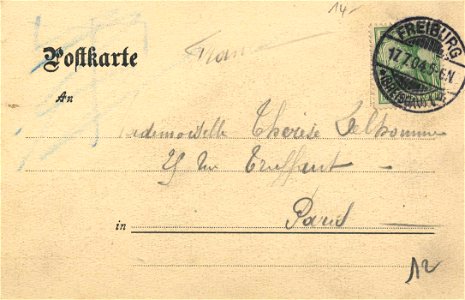 14-
FREIBURG
17.7.04.5-6N.
Postkarte
An
Mademoiselle Thérèse Delhomme
25 Rue Truffaut
in Paris
12